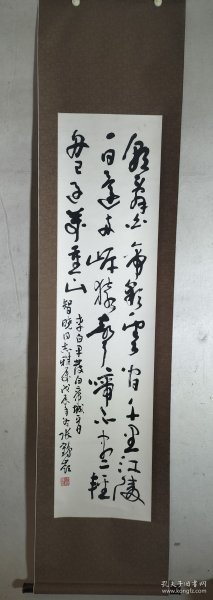 朝辭白帝彩雲間千里江陵
一日還兩岸猿聲啼不盡輕
舟已過萬重山
李白早發白帝城
同志雅 戊辰年 張
孔夫子旧书网